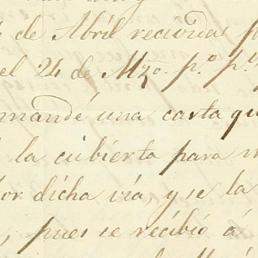 de Abril recividas
el 24 de Mzo. p.º p.
mandé una carta qu
la cubierta para
or dicha via y se la
, pues se recibió á